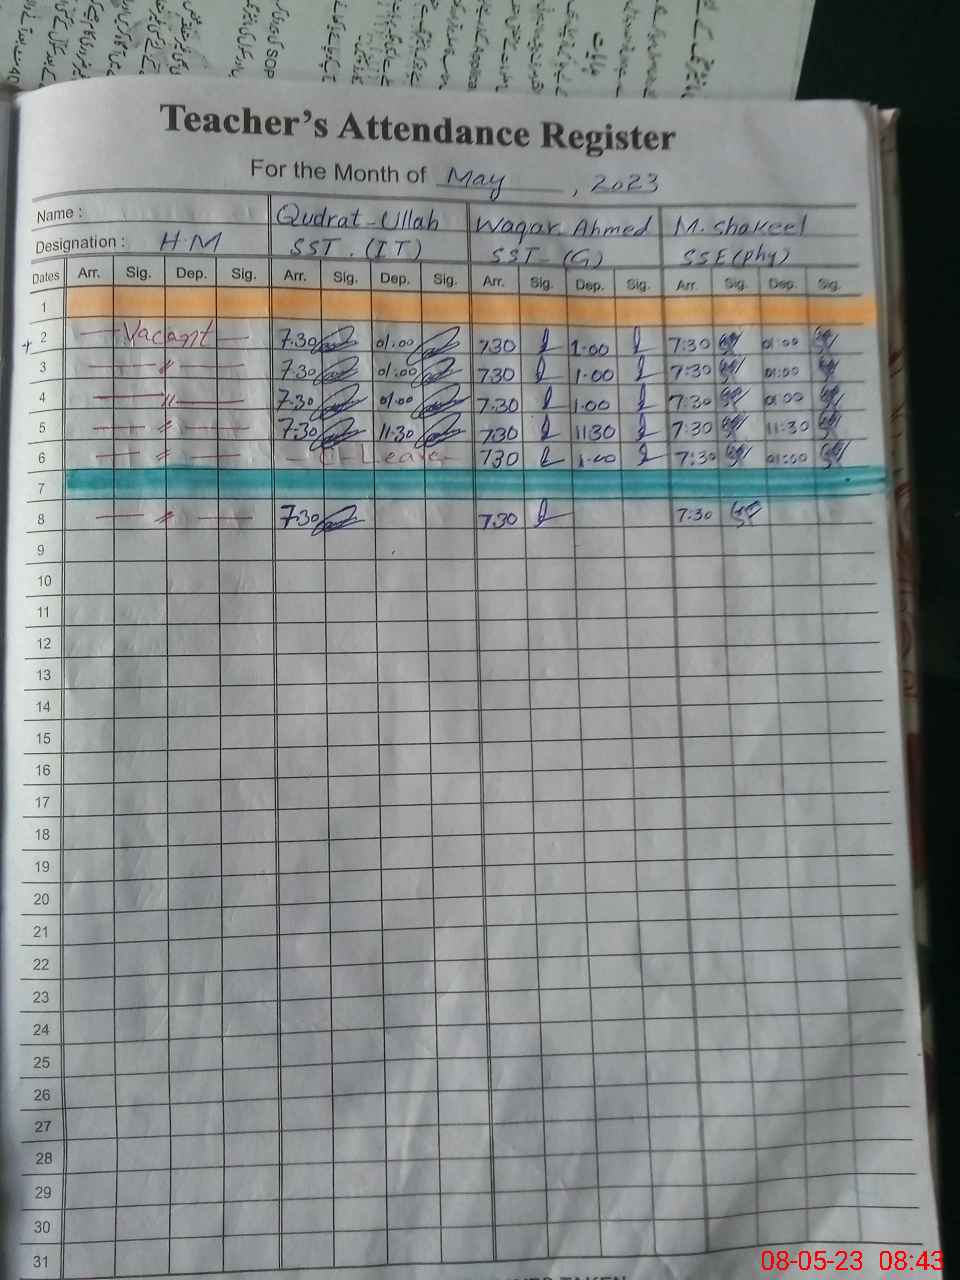 Teacher's Attendance Register
For the Month of May, 2023
Name : Qudrat-Ullah Waqar Ahmed M. Shakeel
Designation : H.M SST.(IT) SST-(G) SSE(Phy)
Dates Arr. Sig. Dep. Sig. Arr. Sig. Dep. Sig. Arr. Sig. Dep. Sig. Arr. Sig. Dep. Sig.
1
2 — Vacant — 7.30 01.00 730 1.00 7:30 01:00
3 — 〃 — 7.30 01.00 730 1.00 7:30 01:00
4 — 〃 — 7.30 01.00 7.30 1.00 7:30 01:00
5 — 〃 — 7.30 11.30 730 1130 7:30 11:30
6 — 〃 — - C-Leave- 730 1.00 7:30 01:00
7
8 — 〃 — 7.30 7.30 7:30
9
10
11
12
13
14
15
16
17
18
19
20
21
22
23
24
25
26
27
28
29
30
31
08-05-23 08:43